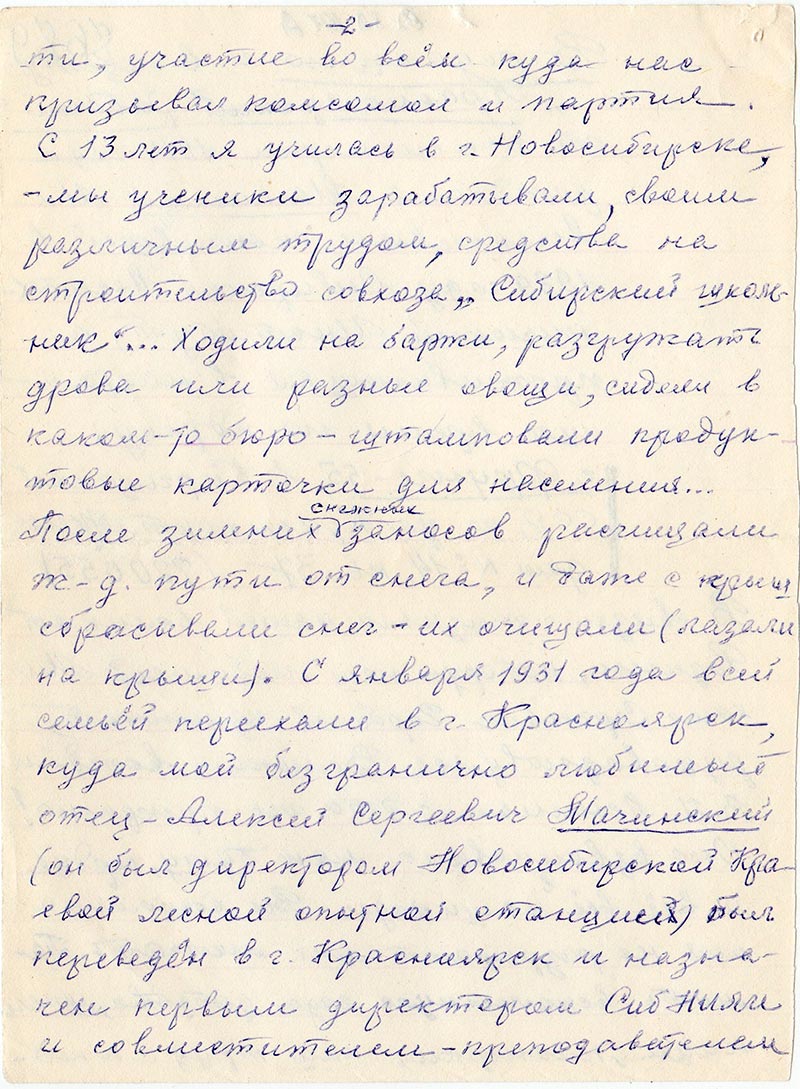 -2-
ти, участие во всём куда нас
призывал комсомол и партия.
С 13 лет я училась в г. Новосибирске,
-мы ученики зарабатывали, своим
различным трудом, средства на
строительство совхоза „Сибирский школь-
ник"... Ходили на баржи, разгружать
дрова или разные овощи, сидели в
каком-то бюро - штамповали продук-
товые карточки для населения...
снежных
После зимних заносов расчищали
ж-д. пути от снега, и даже с крыш
сбрасывали снег - их очищали (лазали
на крыши). С января 1931 года всей
семьёй переехали в г. Красноярск,
куда мой безгранично любимый
отец - Алексей Сергеевич Мачинский
(он был директором Новосибирской Кра-
евой лесной опытной станцией) был
переведён в г. Красноярск и назна-
чен первым директором
и совместителем - преподавателем